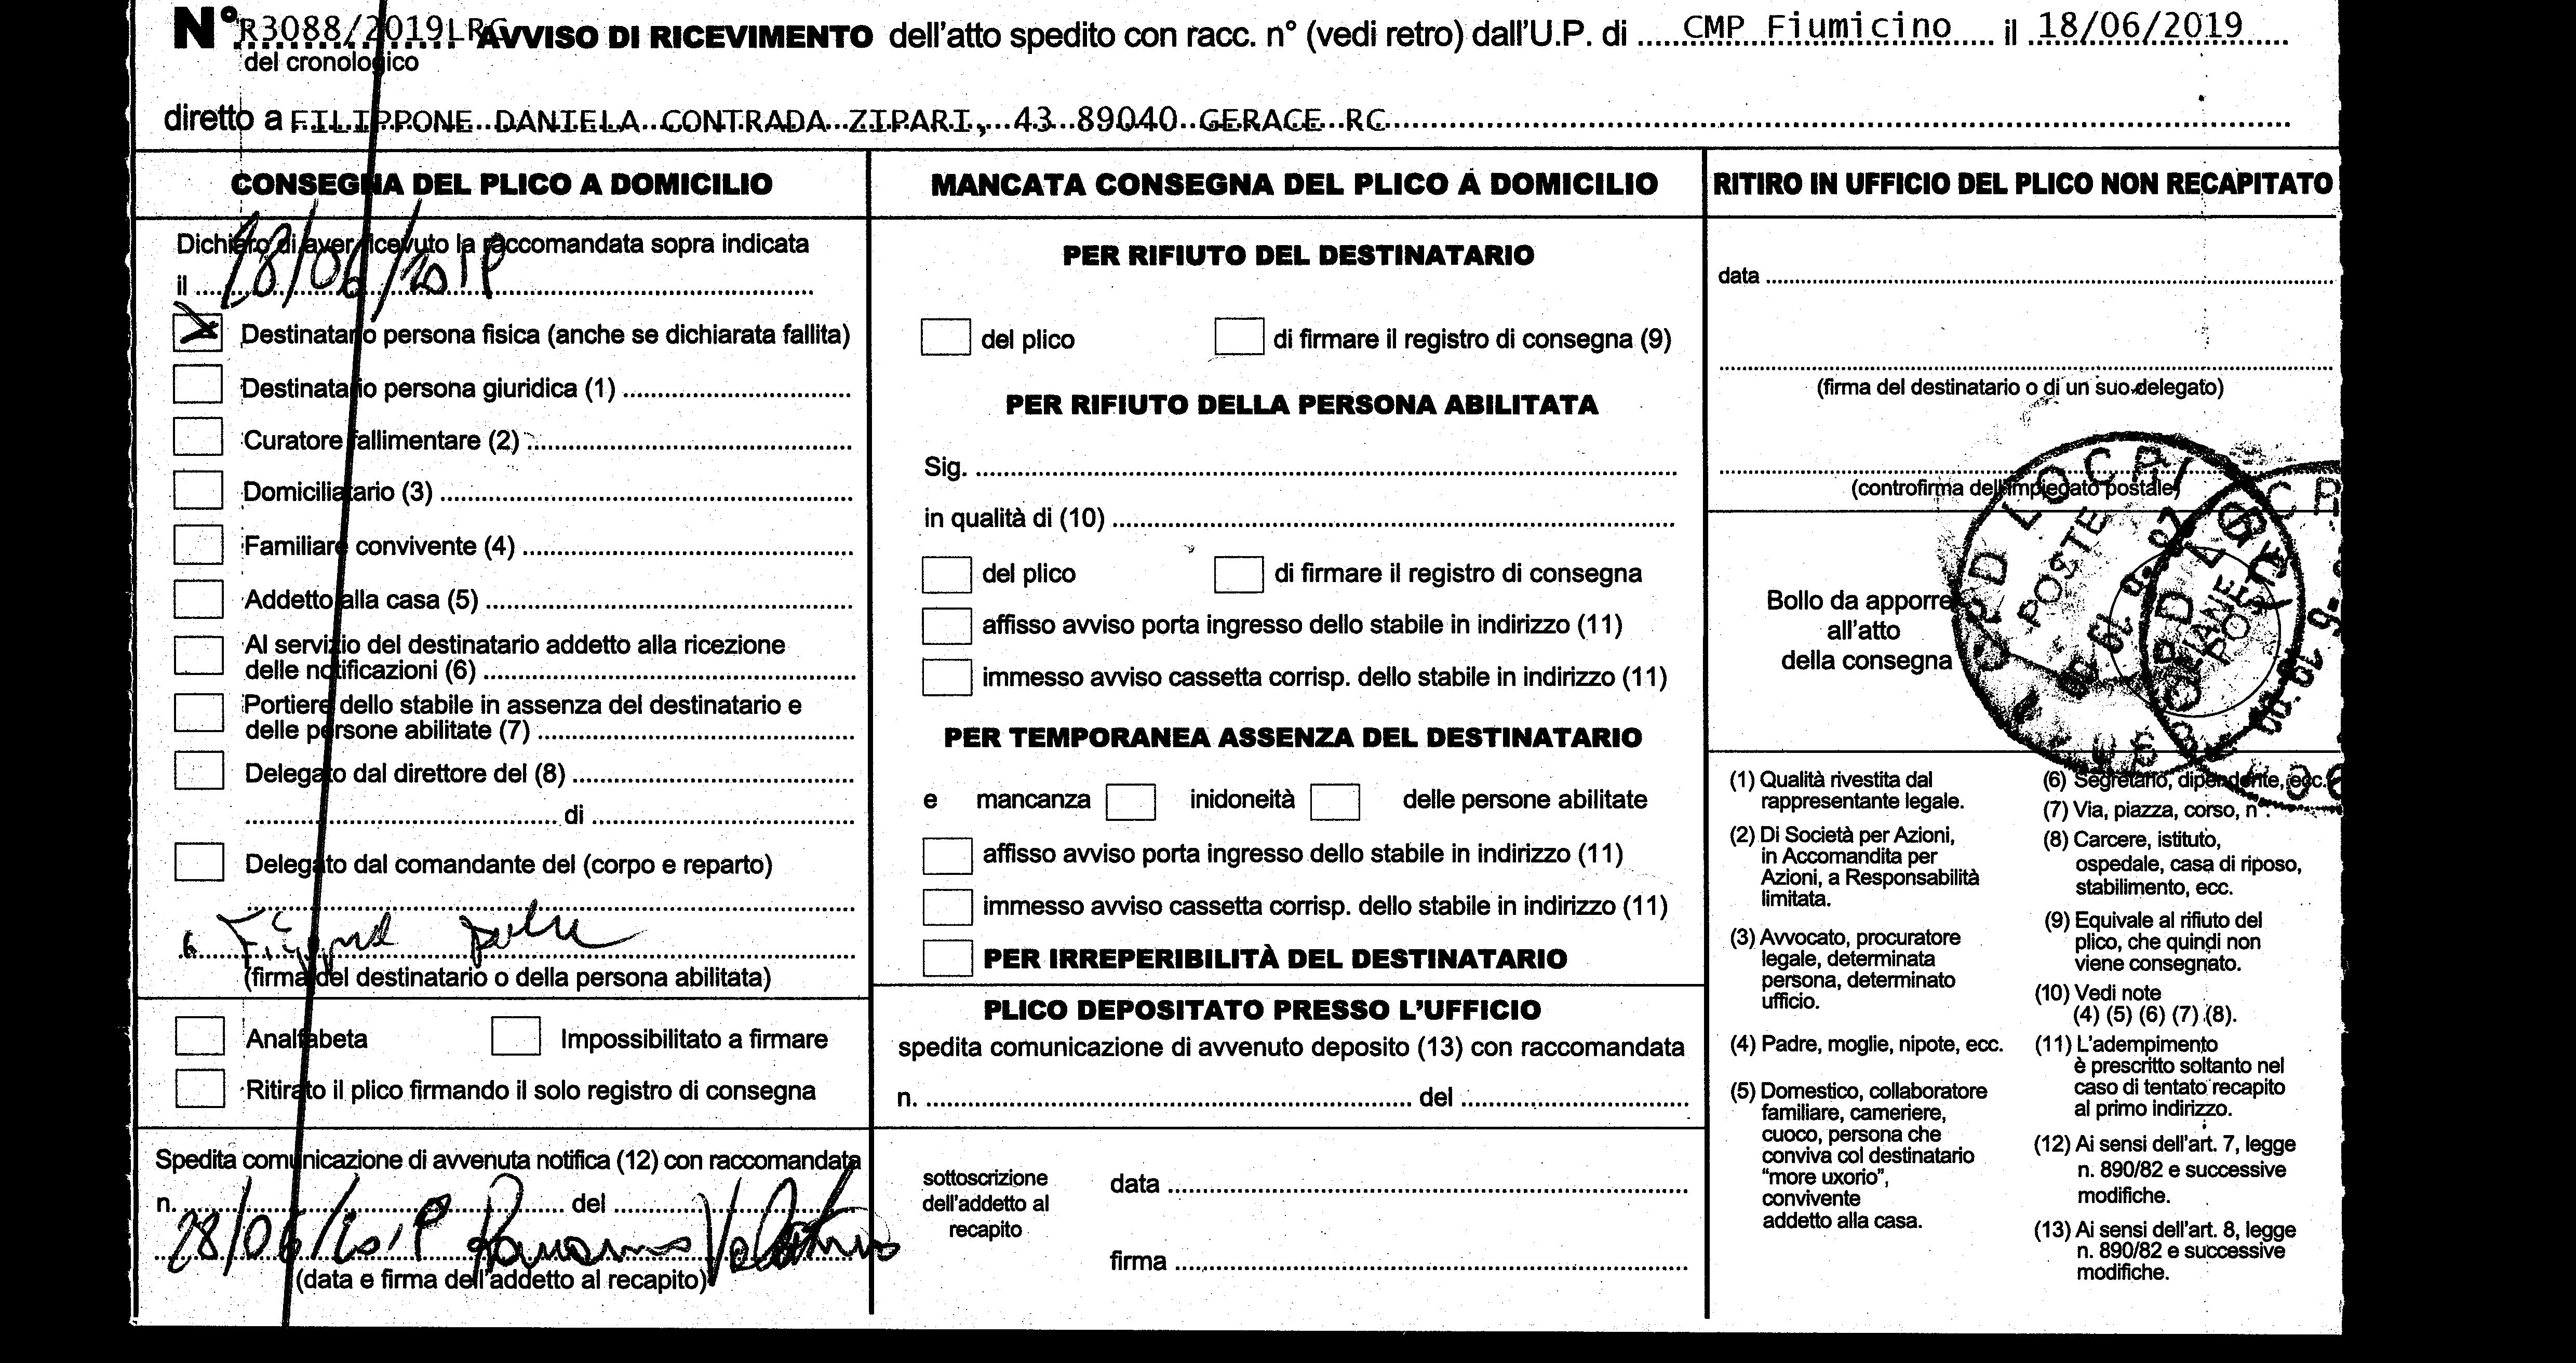 N° R3088/2019LRG AVVISO DI RICEVIMENTO dell'atto spedito con racc. n° (vedi retro) dall'U.P. di CMP Fiumicino il 18/06/2019
del cronologico
diretto a FILIPPONE DANIELA CONTRADA ZIPARI, 43 89040 GERACE RC
CONSEGNA DEL PLICO A DOMICILIO
Dichiaro di aver ricevuto la raccomandata sopra indicata
il 28/06/2019
Destinatario persona fisica (anche se dichiarata fallita)
Destinatario persona giuridica (1)
Curatore fallimentare (2)
Domiciliatario (3)
Familiare convivente (4)
Addetto alla casa (5)
Al servizio del destinatario addetto alla ricezione
delle notificazioni (6)
Portiere dello stabile in assenza del destinatario e
delle persone abilitate (7)
Delegato dal direttore del (8)
di
Delegato dal comandante del (corpo e reparto)
(firma del destinatario o della persona abilitata)
Analfabeta Impossibilitato a firmare
Ritirato il plico firmando il solo registro di consegna
Spedita comunicazione di avvenuta notifica (12) con raccomandata
n. del
28/06/2019
(data e firma dell'addetto al recapito)
MANCATA CONSEGNA DEL PLICO A DOMICILIO
PER RIFIUTO DEL DESTINATARIO
del plico di firmare il registro di consegna (9)
PER RIFIUTO DELLA PERSONA ABILITATA
Sig.
in qualità di (10)
del plico di firmare il registro di consegna
affisso avviso porta ingresso dello stabile in indirizzo (11)
immesso avviso cassetta corrisp. dello stabile in indirizzo (11)
PER TEMPORANEA ASSENZA DEL DESTINATARIO
e mancanza inidoneità delle persone abilitate
affisso avviso porta ingresso dello stabile in indirizzo (11)
immesso avviso cassetta corrisp. dello stabile in indirizzo (11)
PER IRREPERIBILITÀ DEL DESTINATARIO
PLICO DEPOSITATO PRESSO L'UFFICIO
spedita comunicazione di avvenuto deposito (13) con raccomandata
n. del
sottoscrizione
dell'addetto al
recapito
data
firma
RITIRO IN UFFICIO DEL PLICO NON RECAPITATO
data
(firma del destinatario o di un suo delegato)
(controfirma dell'impiegato postale)
Bollo da apporre
all'atto
della consegna
CPD LOCRI
POSTE
(1) Qualità rivestita dal
rappresentante legale.
(2) Di Società per Azioni,
in Accomandita per
Azioni, a Responsabilità
limitata.
(3) Avvocato, procuratore
legale, determinata
persona, determinato
ufficio.
(4) Padre, moglie, nipote, ecc.
(5) Domestico, collaboratore
familiare, cameriere,
cuoco, persona che
conviva col destinatario
“more uxorio”,
convivente
addetto alla casa.
(6) Segretario, dipendente, ecc.
(7) Via, piazza, corso, n°.
(8) Carcere, istituto,
ospedale, casa di riposo,
stabilimento, ecc.
(9) Equivale al rifiuto del
plico, che quindi non
viene consegnato.
(10) Vedi note
(4) (5) (6) (7) (8).
(11) L'adempimento
è prescritto soltanto nel
caso di tentato recapito
al primo indirizzo.
(12) Ai sensi dell'art. 7, legge
n. 890/82 e successive
modifiche.
(13) Ai sensi dell'art. 8, legge
n. 890/82 e successive
modifiche.